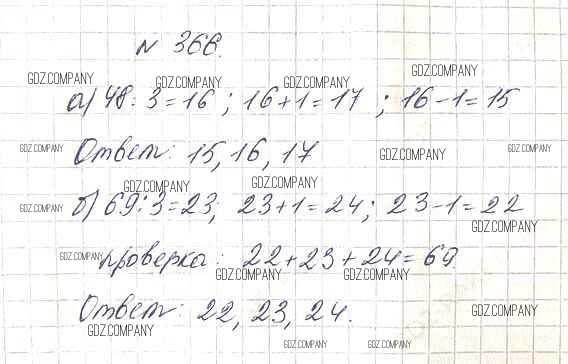 N 366.
GDZ.COMPANY GDZ.COMPANY GDZ.COMPANY GDZ.COMPANY
а) 48 : 3 = 16 ; 16 + 1 = 17 ; 16 - 1 = 15
GDZ.COMPANY GDZ.COMPANY GDZ.COMPANY
Ответ: 15, 16, 17
GDZ.COMPANY GDZ.COMPANY
б) 69 : 3 = 23; 23 + 1 = 24; 23 - 1 = 22
GDZ.COMPANY GDZ.COMPANY
проверка: 22 + 23 + 24 = 69
GDZ.COMPANY GDZ.COMPANY GDZ.COMPANY
Ответ: 22, 23, 24.
GDZ.COMPANY GDZ.COMPANY
GDZ.COMPANY GDZ.COMPANY